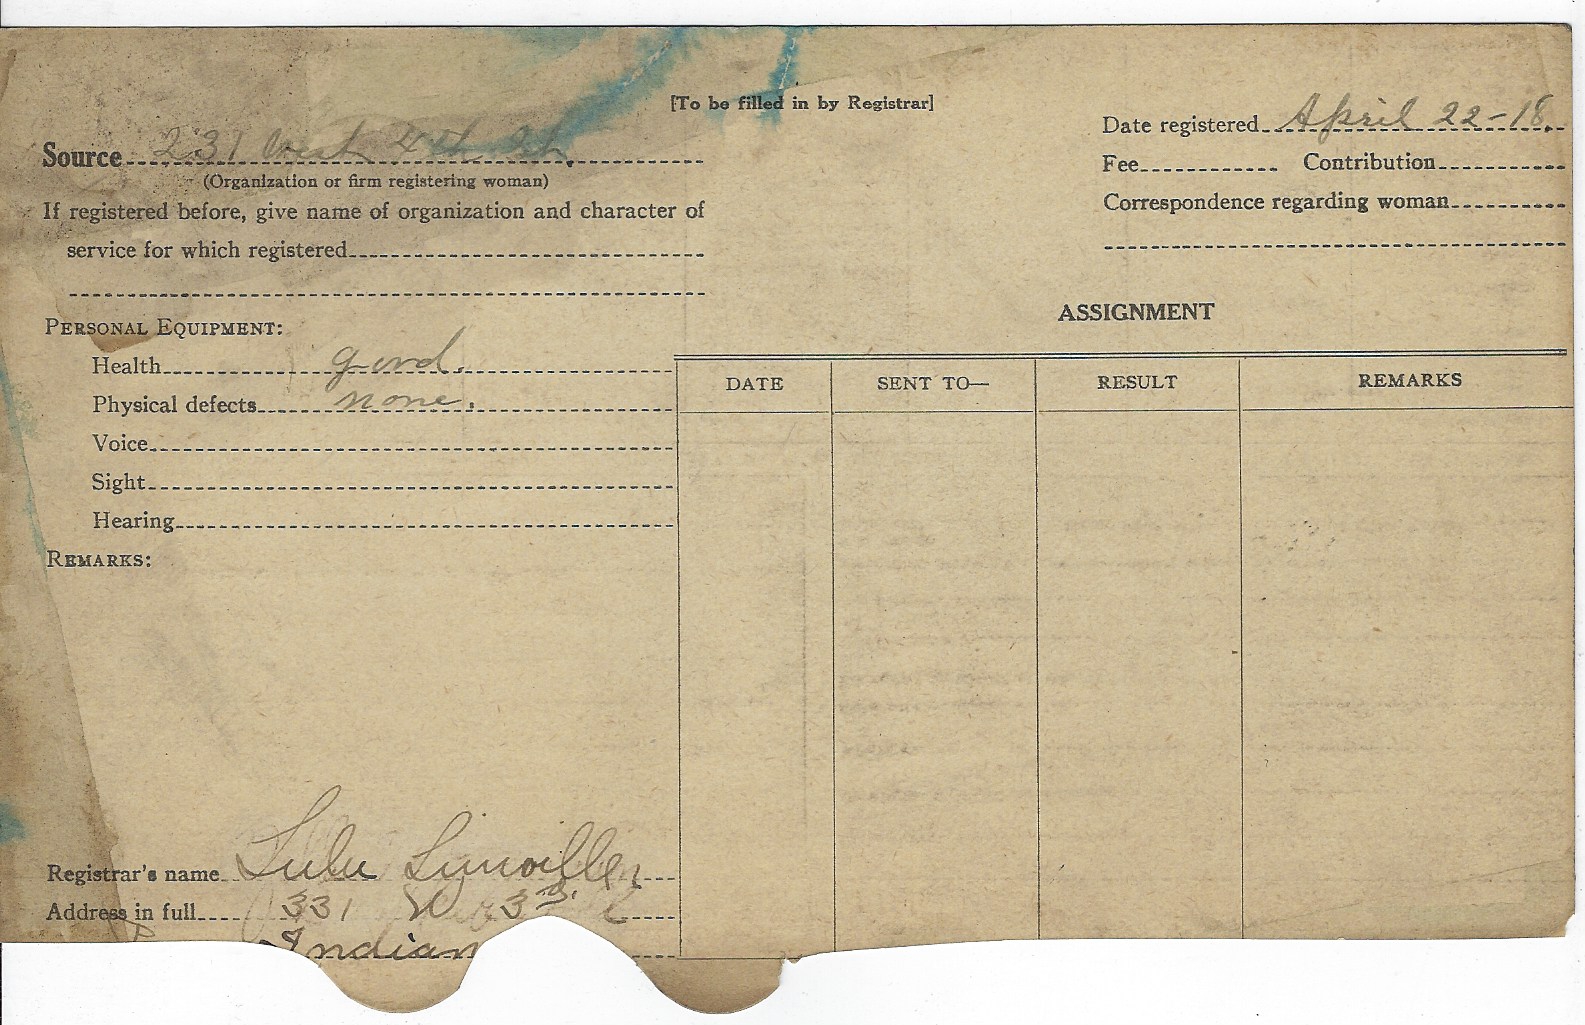 [To be filled in by Registrar]
Date registered April 22-18.
Source 231 West 4th St.
(Organization or firm registering woman)
Fee Contribution
If registered before, give name of organization and character of
Correspondence regarding woman
service for which registered
ASSIGNMENT
PERSONAL EQUIPMENT:
Health good.
Physical defects none.
Voice
Sight
Hearing
REMARKS:
DATE SENT TO— RESULT REMARKS
Registrar's name Lulu Linville
Address in full 331 W 3rd.
Indian